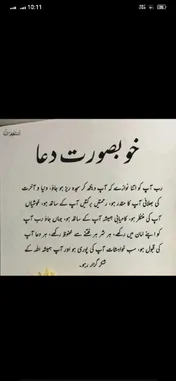 10:11
استغفر اللہ
خوبصورت دعا
رب آپ کو اتنا نوازے کہ آپ دیکھ کر سجدہ ریز ہو جاؤ، دنیا و آخرت
کی بھلائی آپ کا مقدر ہو، رحمتیں برکتیں آپ کے ساتھ ہو، خوشیاں
آپ کی منتظر ہو، کامیابی ہمیشہ آپ کے ساتھ ہو، جہاں جاؤ رب آپ
کو اپنے امان میں رکھے، ہر شر ہر فتنے سے محفوظ رکھے، ہر دعا آپ
کی قبول ہو، سب خواہشات آپ کی پوری ہو اور آپ ہمیشہ اللہ کے
شکر گزار رہو۔